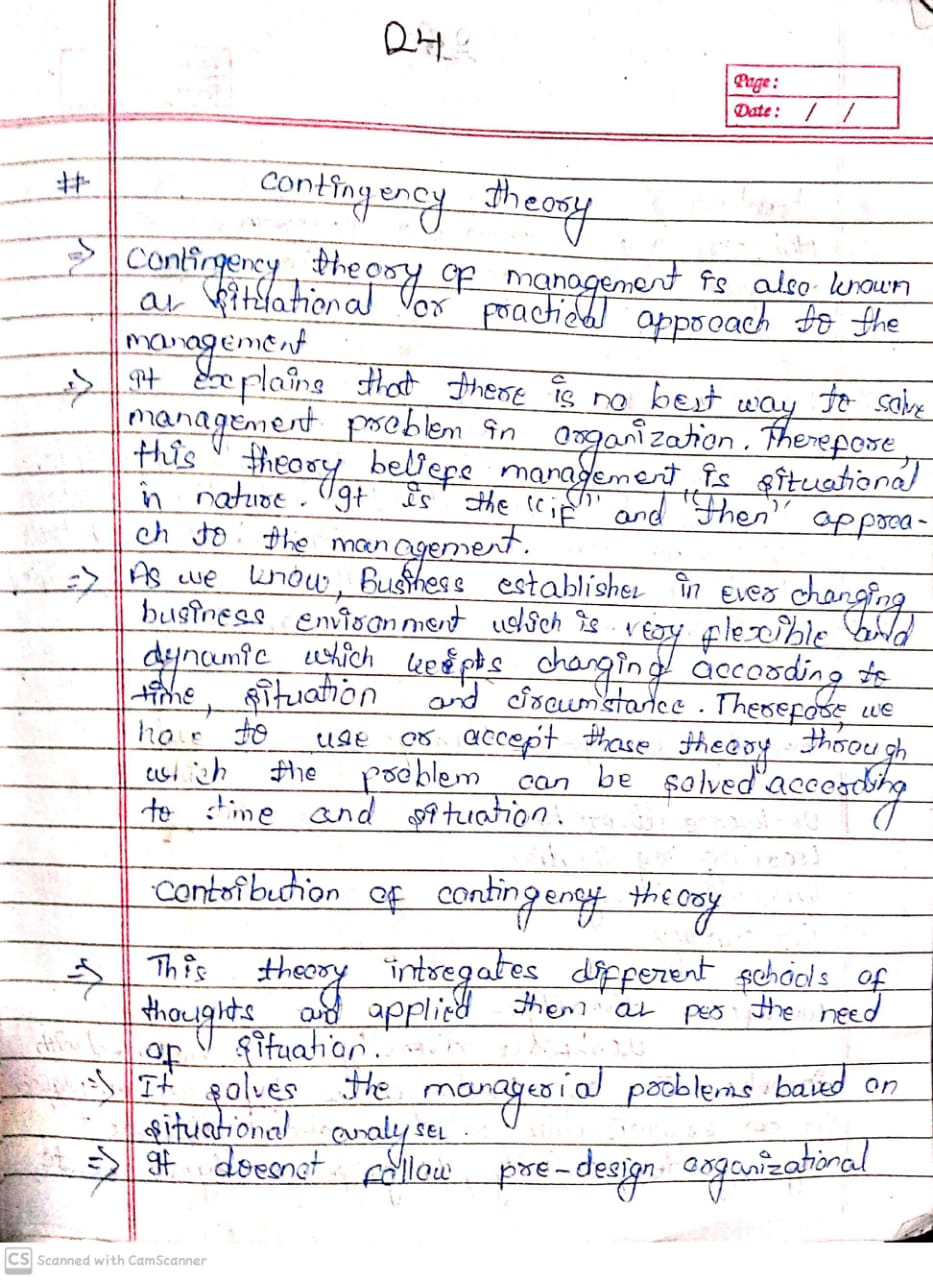 Q4
Page:
Date: / /
# Contingency theory
⇒ Contingency theory of management is also known
as situational or practical approach to the
management
⇒ It explains that there is no best way to solve
management problem in organization. Therefore,
this theory beliefs management is situational
in nature. It is the "if" and "then" approa-
ch to the management.
⇒ As we know, Business establishes in ever changing
business environment which is very flexible and
dynamic which keeps changing according to
time, situation and circumstance. Therefore, we
have to use or accept those theory through
which the problem can be solved according
to time and situation.
Contribution of contingency theory
⇒ This theory intregates different schools of
thoughts and applied them as per the need
of situation.
⇒ It solves the managerial problems based on
situational analyses.
⇒ It doesnot follow pre-design organizational
CS Scanned with CamScanner